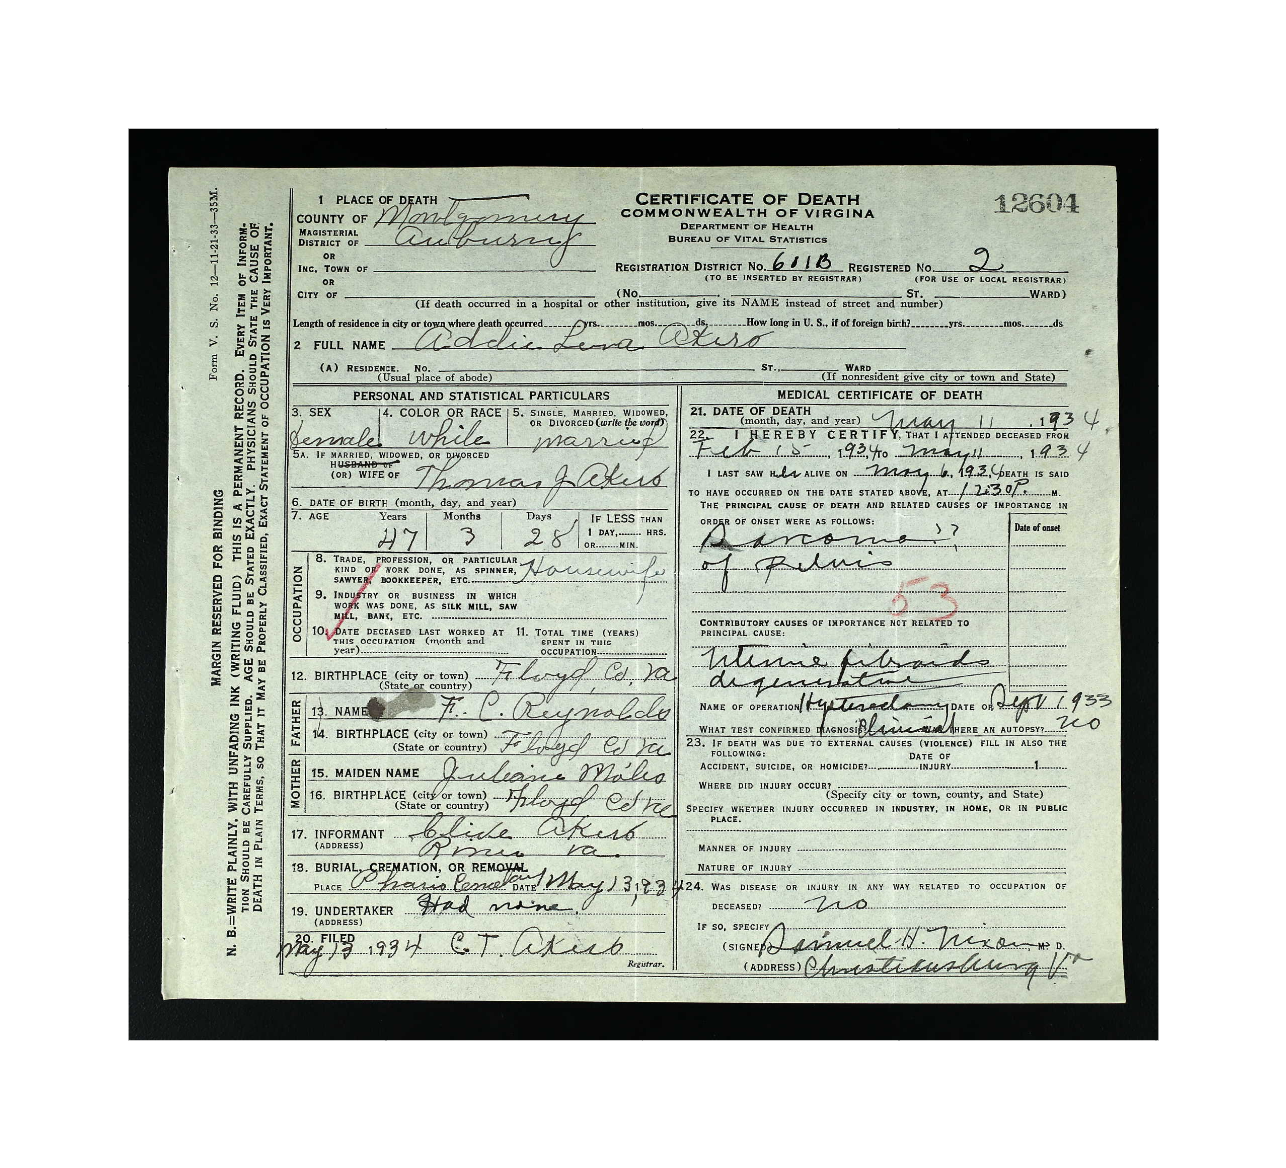 Form V. S. No. 12—11-21-33—35M.
MARGIN RESERVED FOR BINDING
N. B.—WRITE PLAINLY, WITH UNFADING INK (WRITING FLUID) THIS IS A PERMANENT RECORD. EVERY ITEM OF INFORM-
TION SHOULD BE CAREFULLY SUPPLIED. AGE SHOULD BE STATED EXACTLY. PHYSICIANS SHOULD STATE THE CAUSE OF
DEATH IN PLAIN TERMS, SO THAT IT MAY BE PROPERLY CLASSIFIED, EXACT STATEMENT OF OCCUPATION IS VERY IMPORTANT.
1 PLACE OF DEATH
COUNTY OF Montgomery
MAGISTERIAL
DISTRICT OF Auburn
OR
INC. TOWN OF
OR
CITY OF
CERTIFICATE OF DEATH
COMMONWEALTH OF VIRGINA
DEPARTMENT OF HEALTH
BUREAU OF VITAL STATISTICS
12604
REGISTRATION DISTRICT NO. 611B REGISTERED NO. 2
(TO BE INSERTED BY REGISTRAR) (FOR USE OF LOCAL REGISTRAR)
(No. ST. WARD)
(If death occurred in a hospital or other institution, give its NAME instead of street and number)
Length of residence in city or town where death occurred yrs. mos. ds. How long in U. S., if of foreign birth? yrs. mos. ds
2 FULL NAME Addie Lena Akers
(A) RESIDENCE. No. ST., WARD
(Usual place of abode) (If nonresident give city or town and State)
PERSONAL AND STATISTICAL PARTICULARS
3. SEX 4. COLOR OR RACE 5. SINGLE, MARRIED, WIDOWED,
OR DIVORCED (write the word)
female white married
5A. IF MARRIED, WIDOWED, OR DIVORCED
HUSBAND OF
(OR) WIFE OF Thomas J Akers
6. DATE OF BIRTH (month, day, and year)
7. AGE Years Months Days IF LESS THAN
1 DAY, HRS.
OR MIN.
47 3 28
OCCUPATION
8. TRADE, PROFESSION, OR PARTICULAR
KIND OF WORK DONE, AS SPINNER,
SAWYER, BOOKKEEPER, ETC. Housewife
9. INDUSTRY OR BUSINESS IN WHICH
WORK WAS DONE, AS SILK MILL, SAW
MILL, BANK, ETC.
10. DATE DECEASED LAST WORKED AT
THIS OCCUPATION (month and
year)
11. TOTAL TIME (YEARS)
SPENT IN THIS
OCCUPATION
12. BIRTHPLACE (city or town) Floyd, Co, Va
(State or country)
FATHER
13. NAME F. C. Reynolds
14. BIRTHPLACE (city or town) Floyd Co Va
(State or country)
MOTHER
15. MAIDEN NAME Juliann Moles
16. BIRTHPLACE (city or town) Floyd Co Va
(State or country)
17. INFORMANT Clive Akers
(ADDRESS) Va.
18. BURIAL, CREMATION, OR REMOVAL
PLACE Pharis Cemetary DATE May 13, 1934
19. UNDERTAKER Had none.
(ADDRESS)
20. FILED
May 13 1934 C. T. Akers
Registrar.
MEDICAL CERTIFICATE OF DEATH
21. DATE OF DEATH
(month, day, and year) May 11, 1934.
22. I HEREBY CERTIFY, THAT I ATTENDED DECEASED FROM
Feb 15, 1934 TO May 11, 1934
I LAST SAW HER ALIVE ON May 6, 1934 DEATH IS SAID
TO HAVE OCCURRED ON THE DATE STATED ABOVE, AT 12:30P. M.
THE PRINCIPAL CAUSE OF DEATH AND RELATED CAUSES OF IMPORTANCE IN
ORDER OF ONSET WERE AS FOLLOWS: Date of onset
Sarcoma ??
of Pelvis
53
CONTRIBUTORY CAUSES OF IMPORTANCE NOT RELATED TO
PRINCIPAL CAUSE:
Uterine fibroids
degenerative
NAME OF OPERATION Hysterectomy DATE OF Sept 1933
WHAT TEST CONFIRMED DIAGNOSIS? Clinical WAS THERE AN AUTOPSY? no
23. IF DEATH WAS DUE TO EXTERNAL CAUSES (VIOLENCE) FILL IN ALSO THE
FOLLOWING: DATE OF
ACCIDENT, SUICIDE, OR HOMICIDE? INJURY 1
WHERE DID INJURY OCCUR?
(Specify city or town, county, and State)
SPECIFY WHETHER INJURY OCCURRED IN INDUSTRY, IN HOME, OR IN PUBLIC
PLACE.
MANNER OF INJURY
NATURE OF INJURY
24. WAS DISEASE OR INJURY IN ANY WAY RELATED TO OCCUPATION OF
DECEASED? no
IF SO, SPECIFY
(SIGNED) Samuel H. Nixon M. D.
(ADDRESS) Christiansburg Va